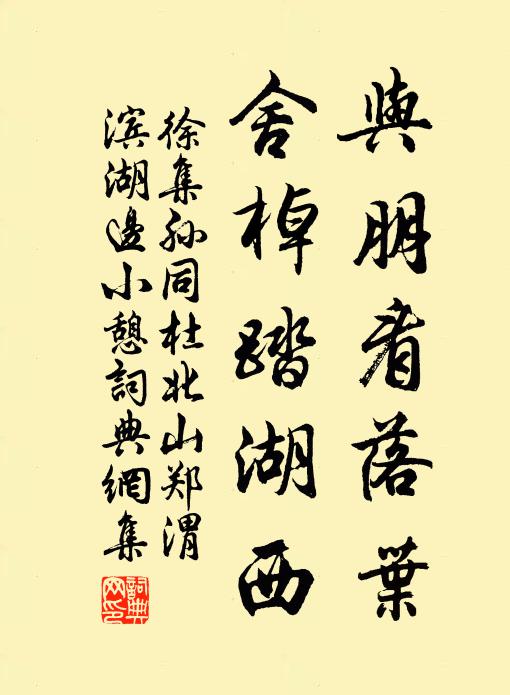 與朋看落葉
舍棹踏湖西
徐集孙同杜北山郑渭
滨湖邊小憩詞典網集
詞典网印